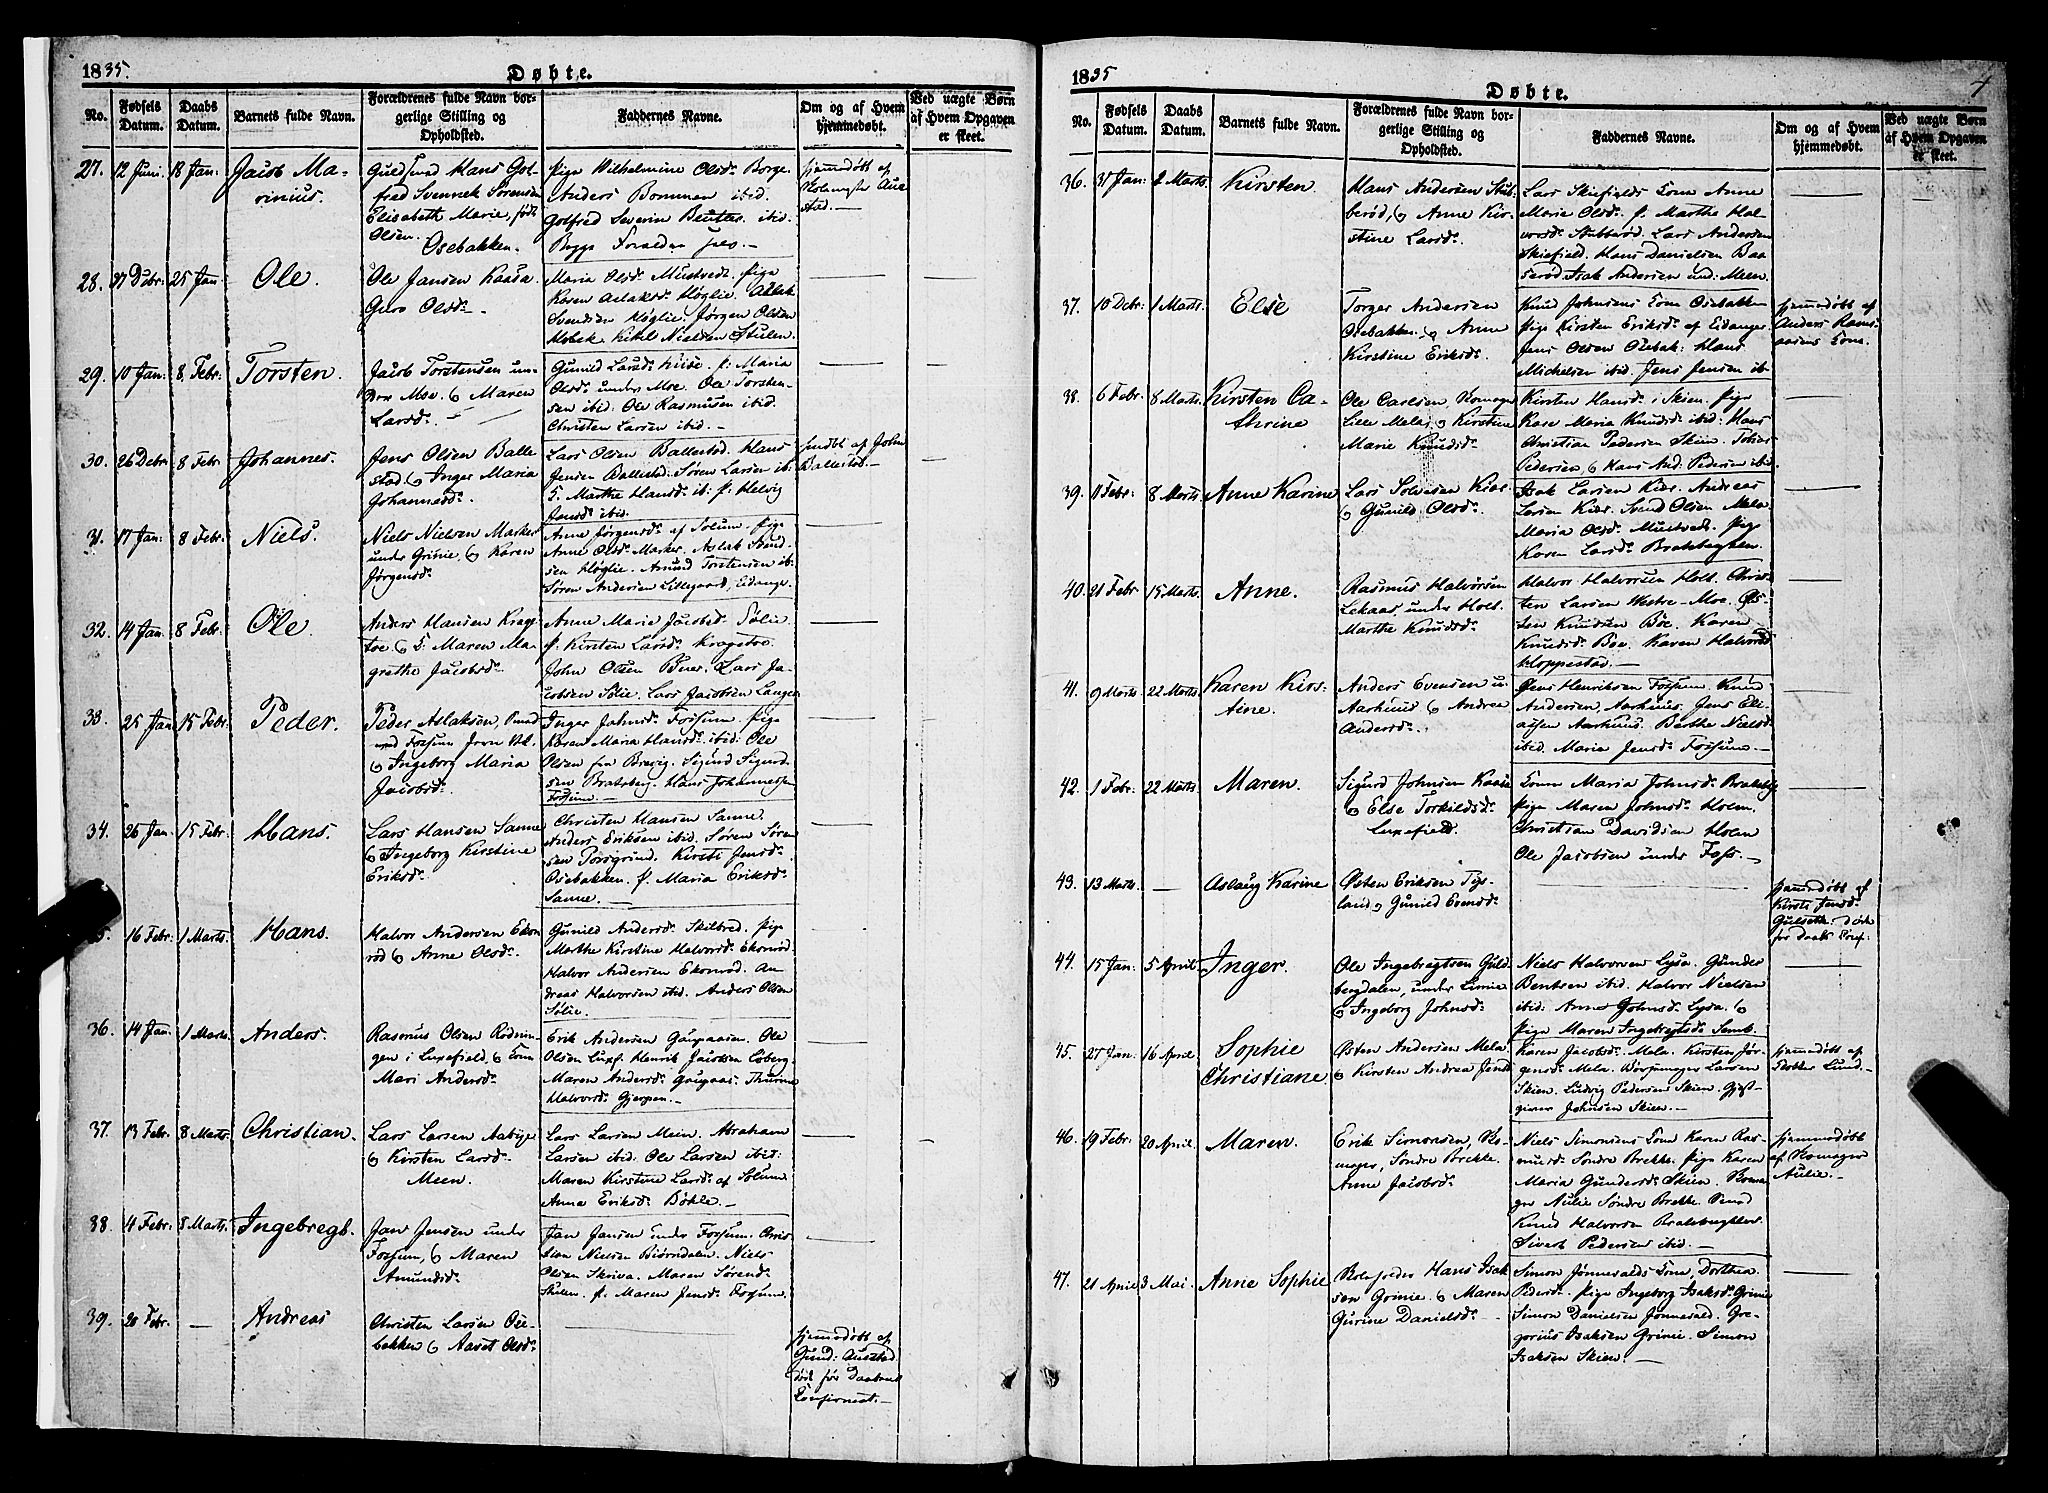 1835.
Døbte.
No.
Fødsels Datum.
Daabs Datum.
Barnets fulde Navn.
Forældrenes fulde Navn borgerlige Stilling og Opholdsted.
Faddernes Navne.
Om og af Hvem hjemmedøbt.
Ved uægte Børn af Hvem Opgaven er skeet.
27. 12 Juni. 18 Jan: Jacob Marinius.
Hans Gotfred Svennek Sørensen
Elisabeth Marie, født
Olsen. Osebakken.
Pige Wilhelmine Olsd: Borge
Anders Bommen ibid.
Gotfred Severin Beutler ibid.
28. 27 Debr: 25 Jan: Ole.
Ole Jansen Kaasa
Guro Olsd:
Maria Olsd: Mustvedt. Pige
Karen Aslaksd: Høglie. Aslak
Svendsen Høglie. Jørgen Olsen
Kittil Nielsen Stulen.
29. 10 Jan: 8 Febr: Torsten.
Jacob Torstensen under
Moe. & Maren
Larsd:
Gunild Larsd: Hiise. p. Maria
Olsd: under Moe. Ole Torstensen
ibid: Ole Rasmusen ibid.
Christen Larsen ibid.
30. 26 Debr 8 Febr Johannes.
Jens Olsen Ballestad.
& Inger Maria
Johannesd:
Lars Olsen Ballestad. Hans
Jensen Ballestad. Søren Larsen ib:
Marthe Hansd: ib: p: Helvig
Jansd: ibid.
af John Ballestad.
31. 17 Jan: 8 Febr: Niels.
Niels Nielsen Marker
under Grinie. & Karen
Jørgensd:
Anne Jørgensd: af Solum. Pige
Anne Olsd: Marker. Aslak Svendsen
Høglie. Amund Torstensen ib:
Søren Andersen Lillegaard, Eidanger.
32. 14 Jan: 8 Febr: Ole.
Anders Hansen Kragtoe
& Maren Magrethe
Jacobsd:
Anne Maria Jacobsd: Sølie
p. Kirsten Larsd: Kragetoe.
John Olsen Lars Jacobsen
Sølie. Lars Jacobsen Langer
33. 25 Jan 15 Febr: Peder.
Peder Aslaksen,
ved Fossum
& Ingeborg Maria
Jacobsd:
Inger Johnsd: Fossum. Pige
Karen Maria Hansd: ibid: Ole
Olsen fra Brevig. Sigurd Sigurdsen
Bratsberg. Hans Johannessen
Fossum.
34. 26 Jan: 15 Febr: Hans.
Lars Hansen Sanne
& Ingeborg Kirstine
Eriksd:
Christen Hansen Sanne.
Anders Eriksen ibid. Søren Sørensen
Porsgrund. Kirsti Jensd:
Osebakken. p. Maria Eriksd:
Sanne.
16 Febr: 1 Marts. Hans.
Halvor Andersen Ekonrød
& Anne Olsd:
Gunild Andersd: Skilbred. Pige
Marthe Kirstine Halvorsd: Ekonrød
Halvor Andersen Ekonrød. Andreas
Halvorsen ibid. Anders Olsen
Sølie.
36. 14 Jan: 1 Marts. Anders.
Rasmus Olsen Rødningen
i Luxefield. &
Mari Andersd:
Erik Andersen Gaupaasen. Ole
Olsen Luxf. Henrik Jacobsen
Maren Andersd: Gaupaas. Thurine
Halvorsd: Gjerpen.
37. 13 Febr: 8 Marts. Christian.
Lars Larsen Aabye
& Kirsten Larsd:
Meen.
Lars Larsen Meen. Abraham
Larsen ibid: Ole Larsen ibid:
Maren Kirstine Larsd: af Solum
Anna Eriksd: Bøhle.
38. 4 Febr: 8 Marts. Ingebregt.
Jan Jensen under
Fossum, & Maren
Amundsd:
Jan Jansen under Fossum.
Nielsen Biørndalen. Niels
Olsen Skriva. Maren Sørensd:
Stulen. p. Maren Jensd: Fossum.
39. 20 Febr. Andreas
Christen Larsen Osebakken
& Aaset Olsd:
hjemmedøbt af
død før Daabens
Confirmat.
1835
Døbte.
4
No.
Fødsels Datum.
Daabs Datum.
Barnets fulde Navn.
Forældrenes fulde Navn borgerlige Stilling og Opholdsted.
Faddernes Navne.
Om og af Hvem hjemmedøbt.
Ved uægte Børn af Hvem Opgaven er skeet.
36. 31 Jan: 1 Marts. Kirsten.
Hans Andersen Stubberød,
& Anne Kirstine
Larsd:
Lars Skiefields Kone Anne
Marie Olsd: p. Marthe Halvorsd:
Stubberød. Lars Andersen
Skiefield. Hans Danielsen
Isak Andersen und: Meen.
37. 10 Debr: 1 Marts. Else
Torger Andersen
Osebakken. & Anne
Kirstine Eriksd:
Knud Johnsens Kone Osebakken
Pige Kirsten Eriksd: af Eidanger
Jens Olsen Osebak: Hans
Michelsen ibid. Jens Jensen ib:
hjemmedøbt af
38. 6 Febr: 8 Marts. Kirsten Cathrine
Ole Carlsen,
Lille Mela, & Kirstine
Marie Knudsd:
Kirsten Hansd: i Skien. Pige
Karen Maria Knudsd: ibid: Hans
Christian Pedersen Skien. Tobias
Pedersen, & Hans And: Pedersen ibid.
39. 11 Febr: 8 Marts. Anne Karine
Lars Solvesen Kiær
& Gunild Olsd:
Isak Larsen Kiær. Andreas
Larsen Kiær. Svend Olsen Mela
Maria Olsd: Mustvedt. Pige
Karen Larsd: Bratsbergkleven.
40. 21 Febr 15 Marts. Anne.
Rasmus Halvorsen
Lekaas, under Holt
Marthe Knudsd:
Halvor Halvorsen Holt.
Larsen Westre-Moe.
Knudsen Bøe. Karen
Knudsd: Boe. Karen Halvorsd:
Kloppestad.
41. 9 Marts. 22 Marts. Karen Kirstine.
Anders Evensen u:
Aarhuus & Andrea
Andersd:
Jens Henriksen Fossum. Knud
Andersen Aarhuus. Jens Eliassen
Aarhuus. Berthe Nielsd:
ibid. Maria Jensd: Fossum.
42. 1 Febr: 22 Marts. Maren.
Sigurd Johnsen Kaase
& Else Torkildsd:
Luxefield.
Kone Maria Johnsd:
Pige Maren Johnsd: Holm.
Christian Davidsen Holm
Ole Jacobsen under Foss.
43. 13 Marts. Aslaug Karine
Østen Eriksen
& Gunild Evensd:
hjemmedøbt af
Kirsti Jensd:
Gulseth. død
før Daabs Conf:
44. 15 Jan: 5 April. Inger.
Ole Ingebregtsen Guldbergdalen,
under Limie
& Ingeborg Johnsd:
Niels Halvorsen Lysa. Gunder
Bentsen ibid. Halvor Nielsen
ibid: Anne Johnsd: Lysa. &
Pige Maren Ingebregtsd:
45. 27 Jan: 16 April. Sophie Christiane.
Østen Andersen Mela
& Kirsten Andrea Jensd:
Karen Jacobsd: Mela. Kirsten Jørgensd:
Mela. Larsen
Skien. Ludvig Pedersen Skien. Gjestgiver
Johnsen Skien.
hjemmedøbt af
Lund.
46. 19 Febr: 20 April. Maren.
Erik Simonsen,
Søndre Brekke.
Anne Jacobsd:
Niels Simonsens Kone Karen Rasmusd:
Søndre Brekke. Pige Karen
Maria Gundersd: Skien.
Søndre Brekke.
Knud Halvorsen
Sivert Pedersen ibid.
hjemmedøbt
47. 21 April 3 Mai. Anne Sophie
Hans Isaksen
Grinie. & Maren
Gurine Danielsd:
Simon Jønnevalds Kone, Dorthea
Pedersd: Pige Ingeborg Isaksd: Grinie
Simon Danielsen Jønnevald. Gregorius
Isaksen Grinie. Simon
Isaksen Skien.